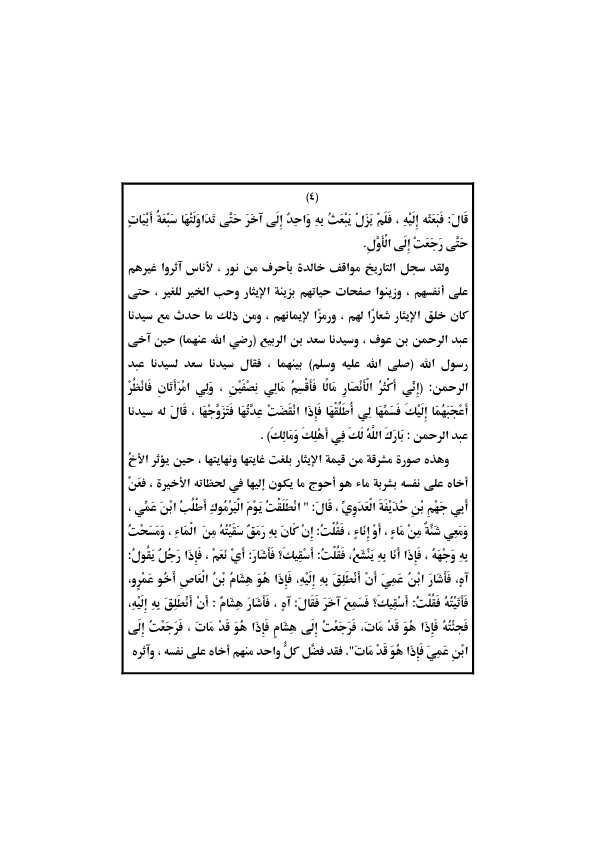 (٤)
قَالَ: فَبَعَثَه إِلَيْهِ ، فَلَمْ يَزَلْ يَبْعَثُ بِهِ وَاحِدٌ إِلَى آخَرَ حَتَّى تَدَاوَلَتْهَا سَبْعَةُ أَبْيَاتٍ
حَتَّى رَجَعَتْ إِلَى الْأَوَّلِ.
ولقد سجل التاريخ مواقف خالدة بأحرف من نور ، لأناس آثروا غيرهم
على أنفسهم ، وزينوا صفحات حياتهم بزينة الإيثار وحب الخير للغير ، حتى
كان خلق الإيثار شعارًا لهم ، ورمزًا لإيمانهم ، ومن ذلك ما حدث مع سيدنا
عبد الرحمن بن عوف ، وسيدنا سعد بن الربيع (رضي الله عنهما) حين آخى
رسول الله (صلى الله عليه وسلم) بينهما ، فقال سيدنا سعد لسيدنا عبد
الرحمن: (إِنِّي أَكْثَرُ الْأَنْصَارِ مَالًا فَأَقْسِمُ مَالِي نِصْفَيْنِ ، وَلِي امْرَأَتَانِ فَانْظُرْ
أَعْجَبَهُمَا إِلَيْكَ فَسَمِّهَا لِي أُطَلِّقْهَا فَإِذَا انْقَضَتْ عِدَّتُهَا فَتَزَوَّجْهَا ، قَالَ له سيدنا
عبد الرحمن : بَارَكَ اللَّهُ لَكَ فِي أَهْلِكَ وَمَالِكَ) .
وهذه صورة مشرقة من قيمة الإيثار بلغت غايتها ونهايتها ، حين يؤثر الأخُ
أخاه على نفسه بشربة ماء هو أحوج ما يكون إليها في لحظاته الأخيرة ، فعَنْ
أَبِي جَهْمِ بْنِ حُذَيْفَةَ الْعَدَوِيِّ ، قَالَ: " انْطَلَقْتُ يَوْمَ الْيَرْمُوكِ أَطْلُبُ ابْنَ عَمِّي ،
وَمَعِي شَنَّةٌ مِنْ مَاءٍ ، أَوْ إِنَاءٍ ، فَقُلْتُ: إِنْ كَانَ بِهِ رَمَقٌ سَقَيْتُهُ مِنَ الْمَاءِ ، وَمَسَحْتُ
بِهِ وَجْهَهُ ، فَإِذَا أَنَا بِهِ يَنْشَعُ، فَقُلْتُ: أَسْقِيكَ؟ فَأَشَارَ: أَيْ نَعَمْ ، فَإِذَا رَجُلٌ يَقُولُ:
آهٍ، فَأَشَارَ ابْنُ عَمِيَ أَنْ أَنْطَلِقَ بِهِ إِلَيْهِ، فَإِذَا هُوَ هِشَامُ بْنُ الْعَاصِ أَخُو عَمْرٍو،
فَأَتَيْتُهُ فَقُلْتُ: أَسْقِيكَ؟ فَسَمِعَ آخَرَ فَقَالَ: آهٍ ، فَأَشَارَ هِشَامٌ : أَنْ أَنْطَلِقَ بِهِ إِلَيْهِ،
فَجِئْتُهُ فَإِذَا هُوَ قَدْ مَاتَ، فَرَجَعْتُ إِلَى هِشَامٍ فَإِذَا هُوَ قَدْ مَاتَ ، فَرَجَعْتُ إِلَى
ابْنِ عَمِيَ فَإِذَا هُوَ قَدْ مَاتَ". فقد فضَّل كلُّ واحد منهم أخاه على نفسه ، وآثره